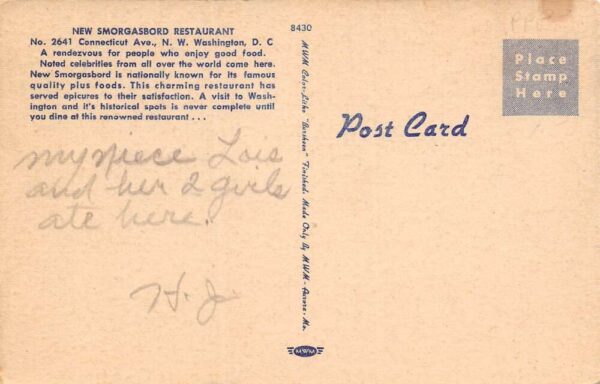 NEW SMORGASBORD RESTAURANT
No. 2641 Connecticut Ave., N. W. Washington, D. C
A rendezvous for people who enjoy good food.
Noted celebrities from all over the world come here.
New Smorgasbord is nationally known for its famous
quality plus foods. This charming restaurant has
served epicures to their satisfaction. A visit to Wash-
ington and it's historical spots is never complete until
you dine at this renowned restaurant . . .
my niece Lois
and her 2 girls
ate here.
H. J.
8430
MWM Color-Litho "Barkeen" Finished. Made Only By MWM - Aurora, Mo.
MWM
Post Card
Place
Stamp
Here